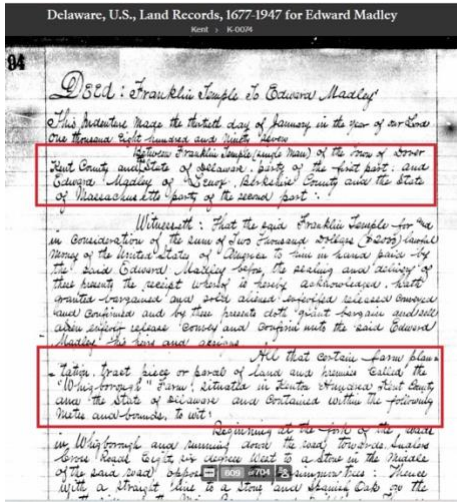 Delaware, U.S., Land Records, 1677-1947 for Edward Madley
Kent > K-0074
94
Deed: Franklin Temple To Edward Madley
This Indenture Made the thirtieth day of January in the year of our Lord
One thousand Eight hundred and Ninety Seven
Between Franklin Temple (single man) of the Town of Dover
Kent County and State of Delaware, party of the first part: and
Edward Madley of Lenox, Berkshire County and the State
of Massachusetts party of the second part:
Witnesseth: That the said Franklin Temple for and
in Consideration of the sum of Two Thousand Dollars lawful
money of the United States of America to him in hand paid by
the said Edward Madley before the sealing and delivery of
these presents the receipt whereof is hereby acknowledged, hath
granted bargained and sold aliened enfeoffed released conveyed
and Confirmed and by these presents doth grant bargain and sell
alien enfeoff release Convey and Confirm unto the said Edward
Madley his heirs and assigns
All that certain farm plan-
tation, tract piece or parcel of land and premises Called the
"Whigborough" Farm, Situated in Kenton Hundred Kent County
and the State of Delaware and Contained within the following
Metes and bounds, to wit:
Beginning at the fork of the roads
in Whigborough and running down the road towards
Cross Roads Eight six degrees West to a Stone in the Middle
of the said road
609 of 704
with a straight line to a Stone and Spanish Oak on the